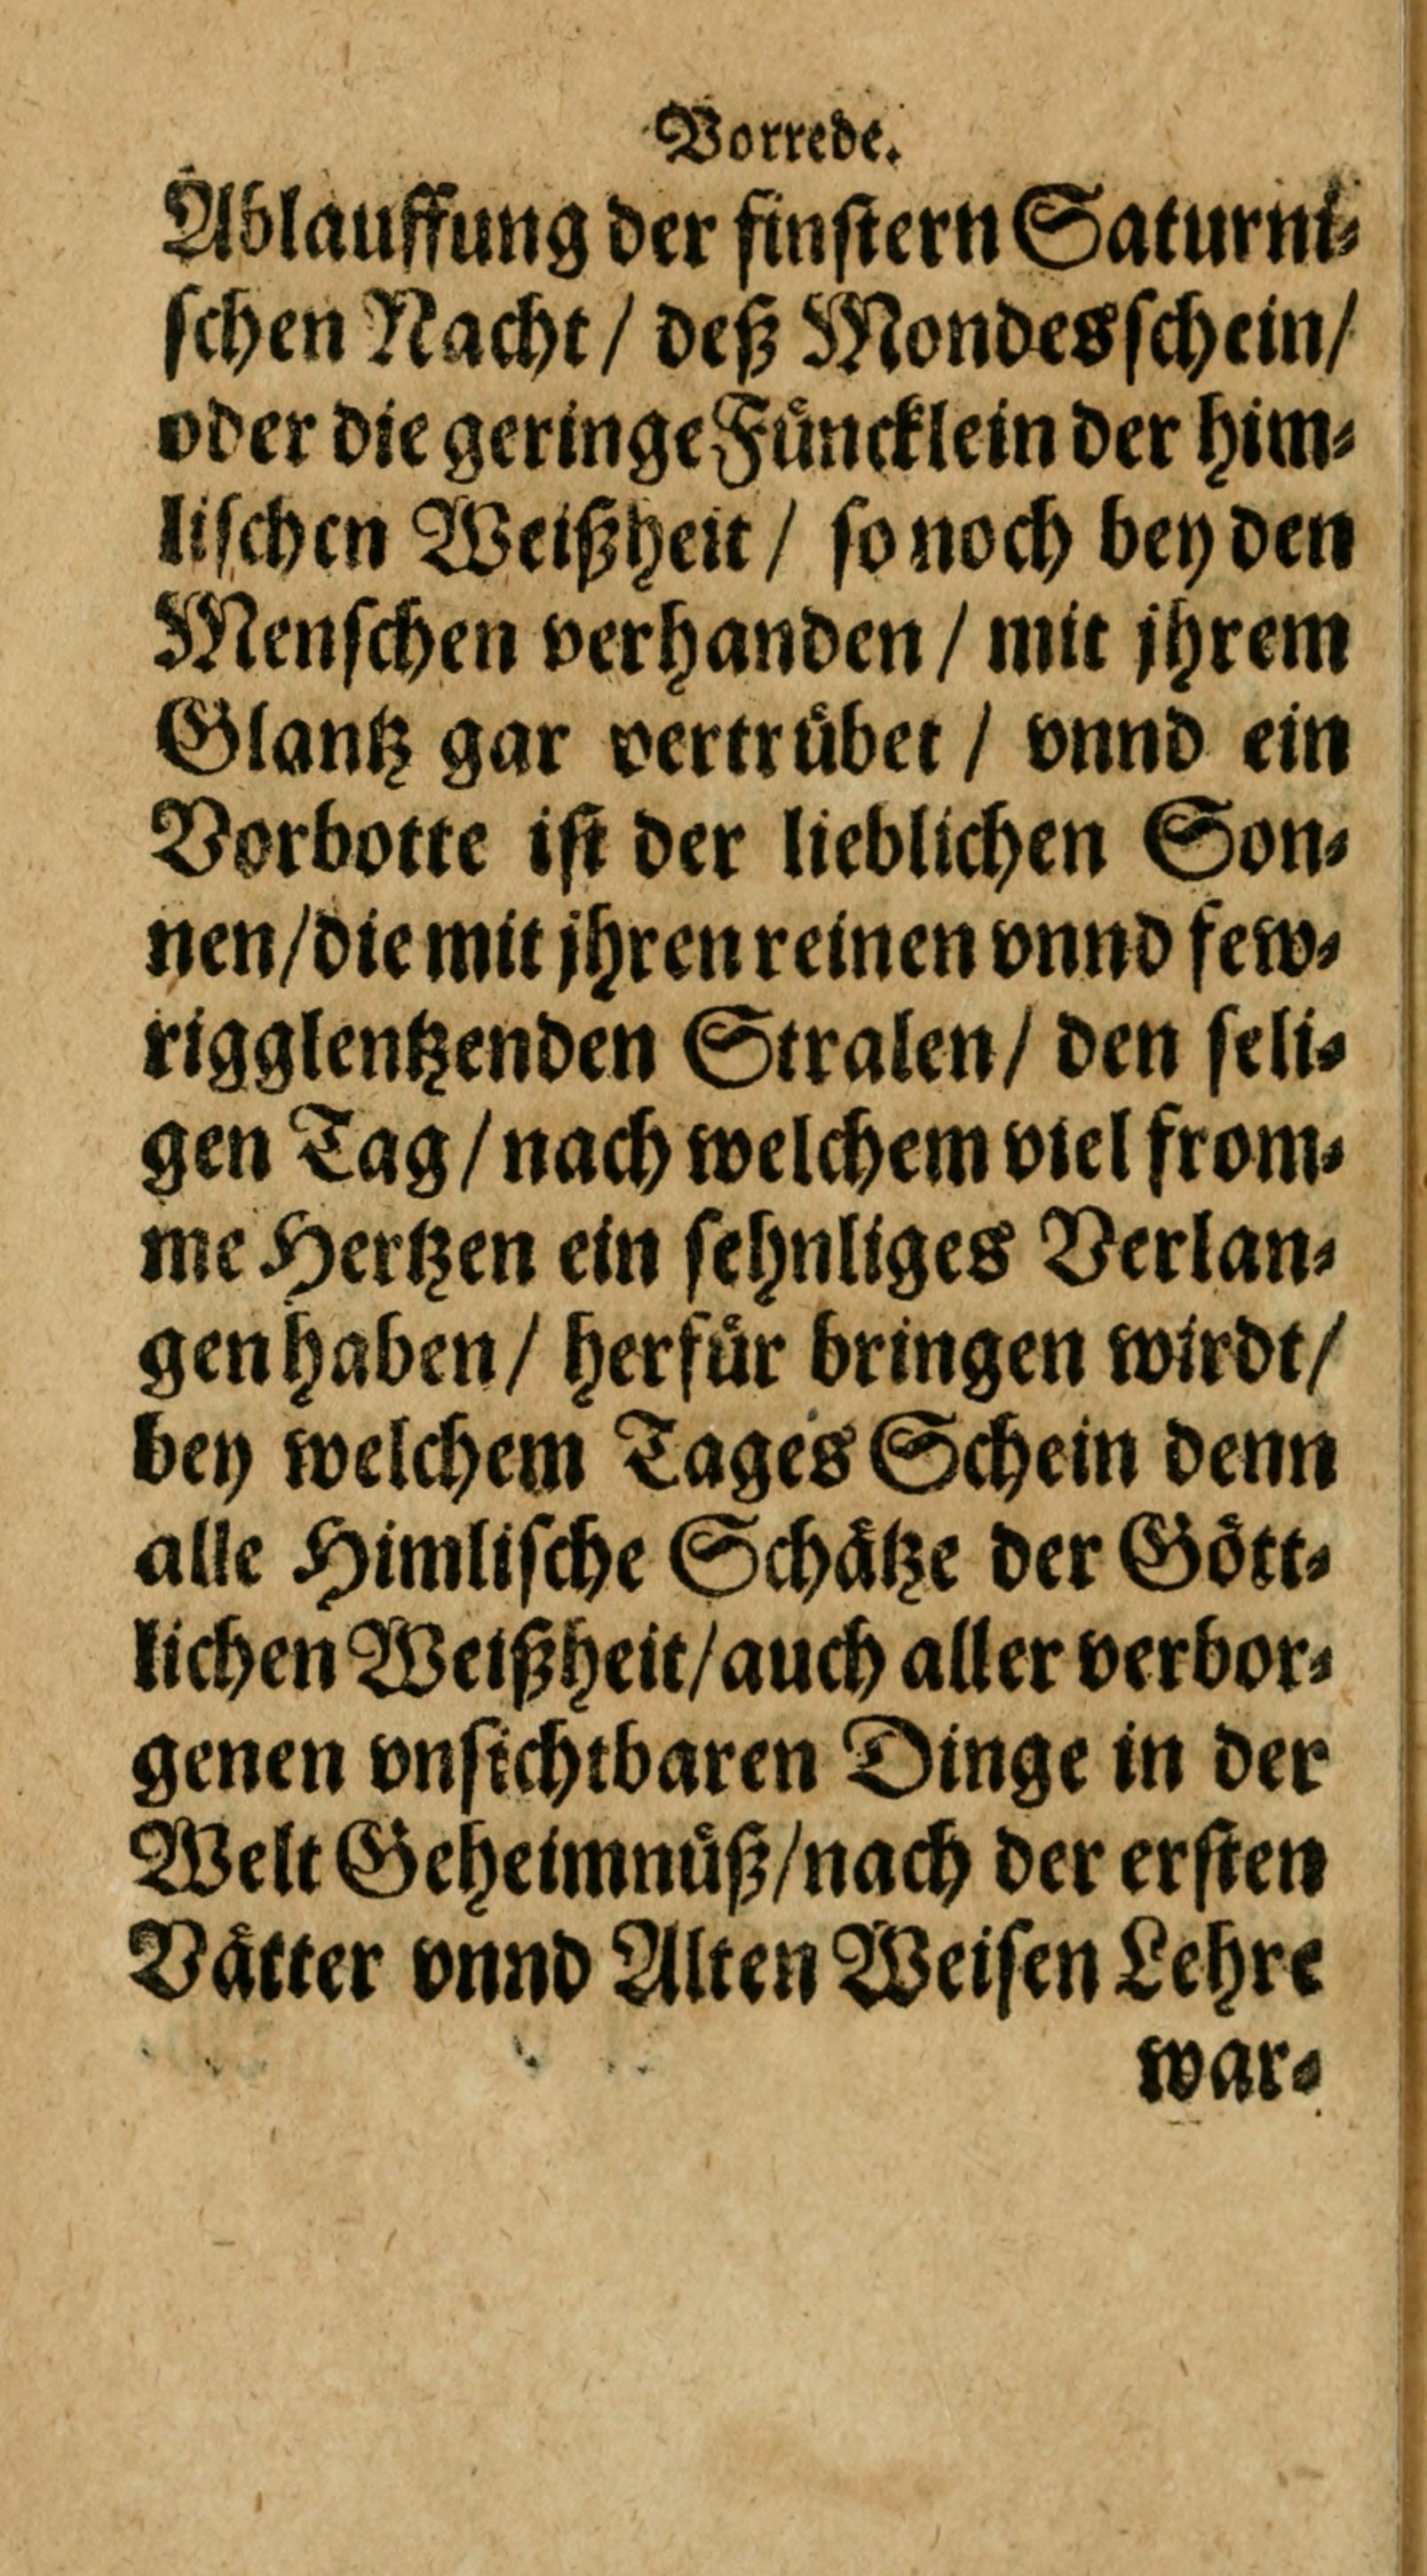 Vorrede.
Ablauffung der finstern Saturni-
schen Nacht / deß Mondesschein/
oder die geringe Fůncklein der him-
lischen Weißheit / so noch bey den
Menschen verhanden / mit jhrem
Glantz gar vertrůbet / vnnd ein
Vorbotte ist der lieblichen Son-
nen/die mit jhren reinen vnnd few-
rigglentzenden Stralen / den seli-
gen Tag / nach welchem viel from-
me Hertzen ein sehnliges Verlan-
gen haben / herfůr bringen wirdt/
bey welchem Tages Schein denn
alle Himlische Schaͤtze der Goͤtt-
lichen Weißheit/auch aller verbor-
genen vnsichtbaren Dinge in der
Welt Geheimnůß/nach der ersten
Vaͤtter vnnd Alten Weisen Lehre
war-